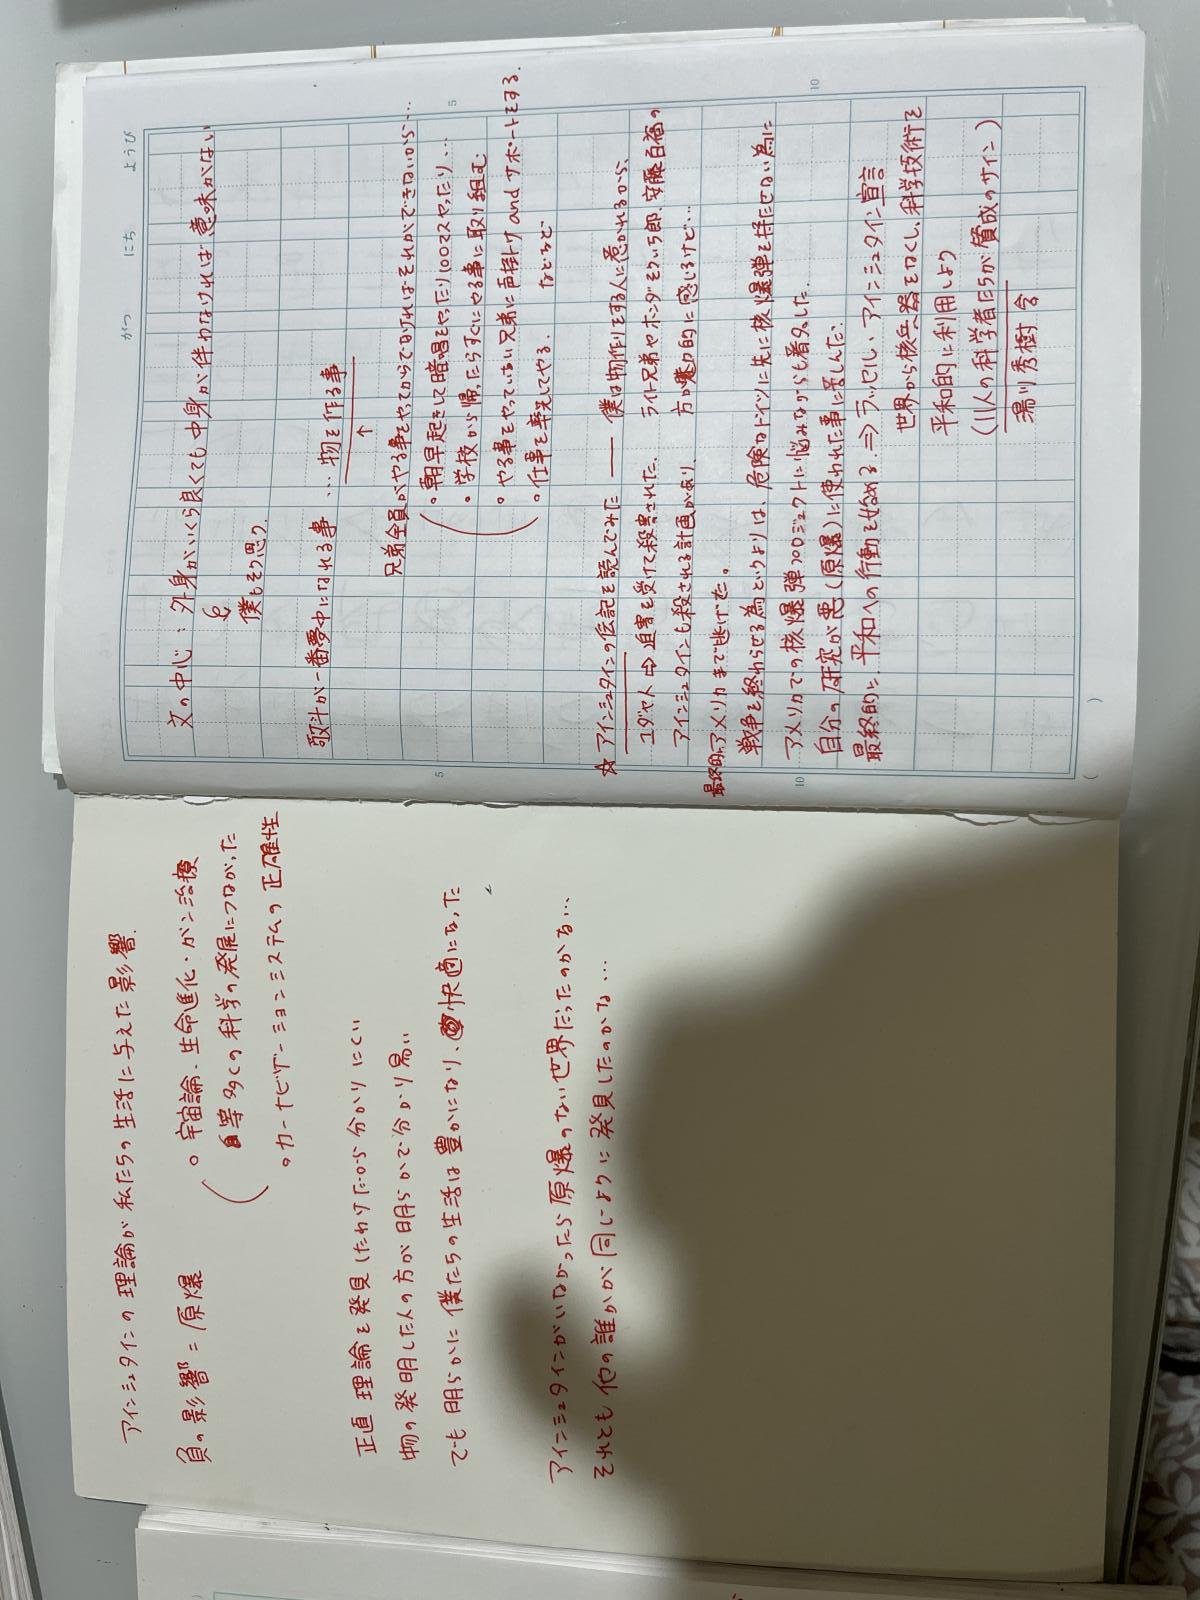 がつ にち ようび
文の中心：外身がいくら良くても中身が伴わなければ意味がない
僕もそう思う.
敬斗が一番夢中になれる事 … 物を作る事
↑
兄弟全員がやる事をやってからでなければそれができないから…
。朝早起きして暗唱をやたり100マスやったり…
。学校から帰ったらすぐにやる事に取り組む
。やる事をやっていない兄弟に声掛け and サポートをする.
。仕事を率先してやる. などなど
☆ アインシュタインの伝記を読んでみた —— 僕は物作りをする人に惹かれるから、
ユダヤ人 ⇨ 迫害を受けて殺害された. ライト兄弟やホンダそういち郎、安藤百福の
アインシュタインも殺される計画があり、 方が魅力的に感じるけど…
最終的にアメリカまで逃げた。
戦争を終わらせる為というよりは、危険なドイツに先に核爆弾を持たせない為に
アメリカでの核爆弾プロジェクトに悩みながらも署名した.
自分の研究が悪(原爆)に使われた事に苦しんだ.
最終的に平和への行動を始める ⇒ ラッセル・アインシュタイン宣言
世界から核兵器をなくし、科学技術を
平和的に利用しよう
(11人の科学者たちが賛成のサイン)
湯川秀樹 含
5
10
5
10
アインシュタインの理論が私たちの生活に与えた影響.
負の影響 = 原爆
。宇宙論・生命進化・ガン治療
等多くの科学の発展につながった
。カーナビゲーションシステムの正確性
正直 理論を発見したわけだから分かりにくい
物の発明した人の方が明らかで分かり易い
でも明らかに僕たちの生活は豊かになり、快適になった
アインシュタインがいなかったら原爆のない世界だったのかな…
それとも他の誰かが同じように発見したのかな…